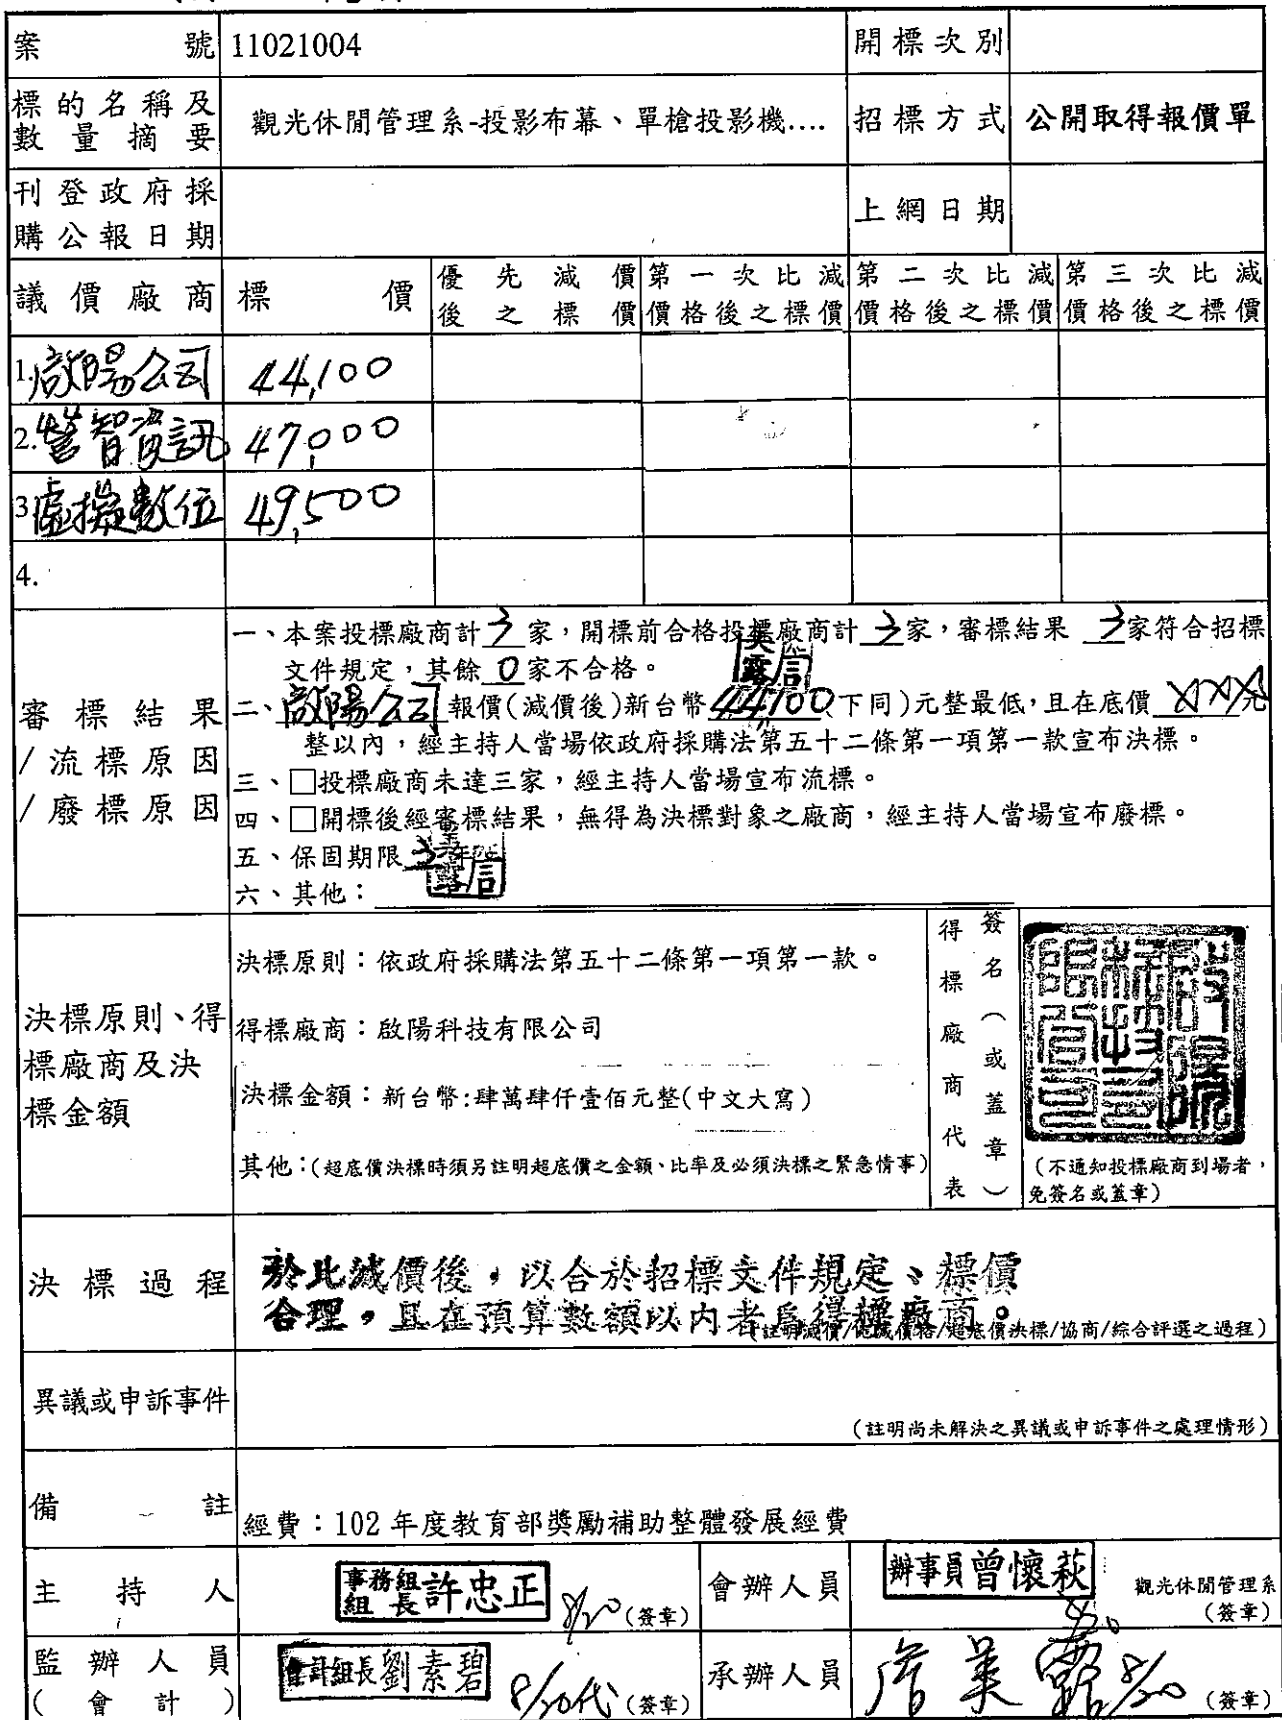 案號 11021004 開標次別
標的名稱及數量摘要 觀光休閒管理系-投影布幕、單槍投影機.... 招標方式 公開取得報價單
刊登政府採購公報日期 上網日期
議價廠商 標價 優先減價後之標價 第一次比減價格後之標價 第二次比減價格後之標價 第三次比減價格後之標價
1.啟陽公司 44,100
2.營智資訊 47,000
3.虛擬數位 49,500
4.
審標結果/流標原因/廢標原因
一、本案投標廠商計 3 家，開標前合格投標廠商計 3 家，審標結果 3 家符合招標
文件規定，其餘 0 家不合格。
二、啟陽公司 報價(減價後)新台幣 44,100 (下同)元整最低，且在底價 XXX 元
整以內，經主持人當場依政府採購法第五十二條第一項第一款宣布決標。
三、□投標廠商未達三家，經主持人當場宣布流標。
四、□開標後經審標結果，無得為決標對象之廠商，經主持人當場宣布廢標。
五、保固期限 3 年
六、其他：
決標原則、得標廠商及決標金額
決標原則：依政府採購法第五十二條第一項第一款。
得標廠商：啟陽科技有限公司
決標金額：新台幣:肆萬肆仟壹佰元整(中文大寫)
其他：(超底價決標時須另註明超底價之金額、比率及必須決標之緊急情事)
得標廠商代表 簽名（或蓋章）
(不通知投標廠商到場者，
免簽名或蓋章)
決標過程
於比減價後，以合於招標文件規定、標價
合理，且在預算數額以內者為得標廠商。
(註明減價/比減價格/超底價決標/協商/綜合評選之過程)
異議或申訴事件
(註明尚未解決之異議或申訴事件之處理情形)
備註 經費：102 年度教育部獎勵補助整體發展經費
主持人 事務組組長 許忠正 8/20 (簽章) 會辦人員 辦事員 曾懷萩 8/20 觀光休閒管理系
(簽章)
監辦人員(會計) 會計組長 劉素碧 8/20代 (簽章) 承辦人員 詹美露 8/20 (簽章)